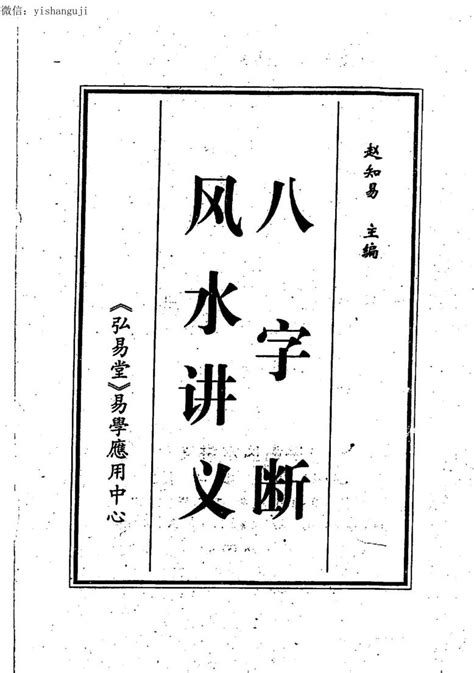 微信：yishanguji
赵知易 主编
八字断
风水讲义
《弘易堂》易學應用中心